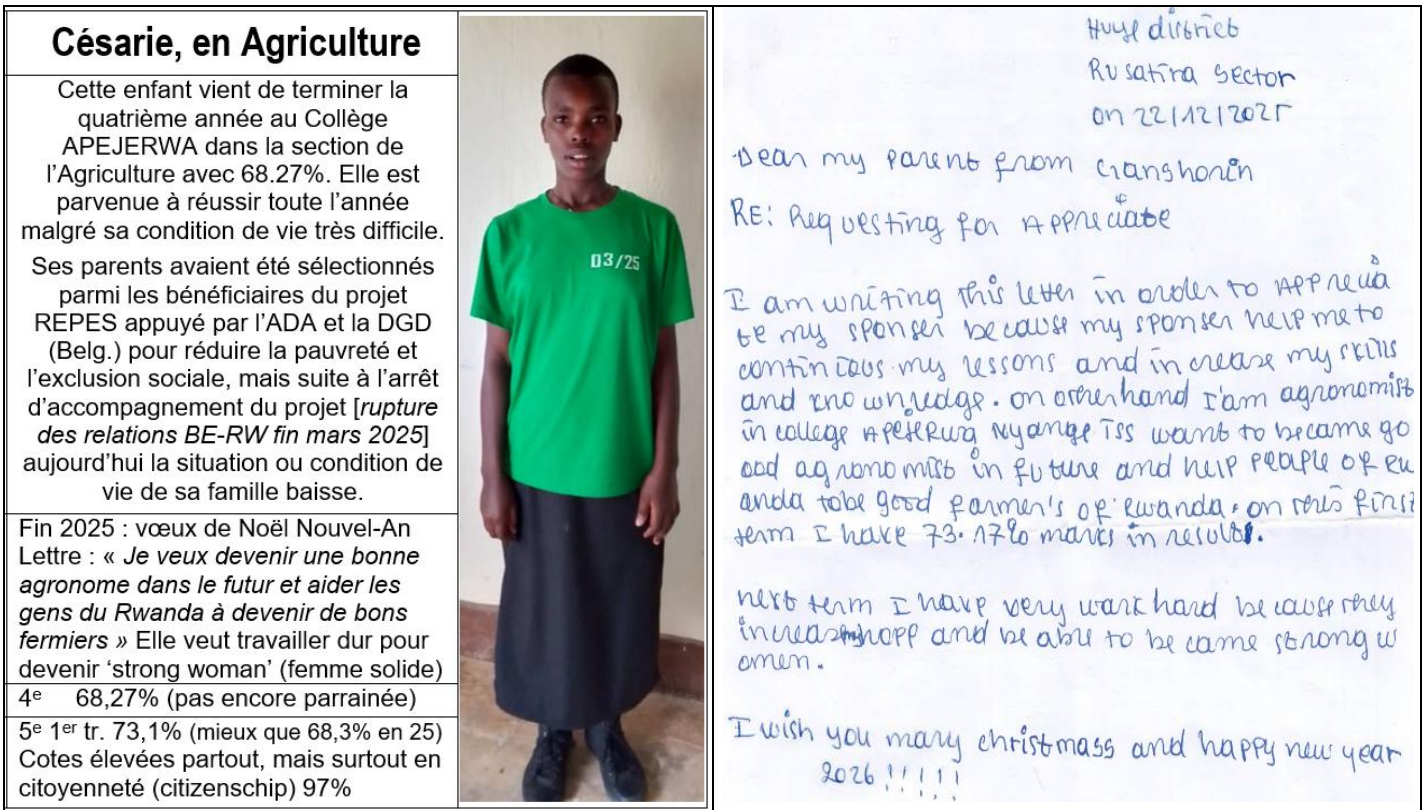 Césarie, en Agriculture
Cette enfant vient de terminer la
quatrième année au Collège
APEJERWA dans la section de
l'Agriculture avec 68.27%. Elle est
parvenue à réussir toute l'année
malgré sa condition de vie très difficile.
Ses parents avaient été sélectionnés
parmi les bénéficiaires du projet
REPES appuyé par l'ADA et la DGD
(Belg.) pour réduire la pauvreté et
l'exclusion sociale, mais suite à l'arrêt
d'accompagnement du projet [rupture
des relations BE-RW fin mars 2025]
aujourd'hui la situation ou condition de
vie de sa famille baisse.
Fin 2025 : vœux de Noël Nouvel-An
Lettre : « Je veux devenir une bonne
agronome dans le futur et aider les
gens du Rwanda à devenir de bons
fermiers » Elle veut travailler dur pour
devenir 'strong woman' (femme solide)
4e 68,27% (pas encore parrainée)
5e 1er tr. 73,1% (mieux que 68,3% en 25)
Cotes élevées partout, mais surtout en
citoyenneté (citizenschip) 97%
03/25
Huye district
Rusatira Sector
on 22/12/2025
Dear my parent from Ganshorin
RE: Requesting for Appreciate
I am writing this letter in order to Apprecia
te my sponser because my sponser help me to
continious my lessons and increase my skills
and knowledge. on otherhand I'am agronomist
in college APEJERWA Nyange TSS want to became go
ood agronomist in future and help people of Rw
anda tobe good farmer's of Rwanda. on this first
term I have 73.17% marks in results.
next term I have very work hard because they
and be able to be came strong w
omen.
I wish you mary christmass and happy new year
2026 !!!!!